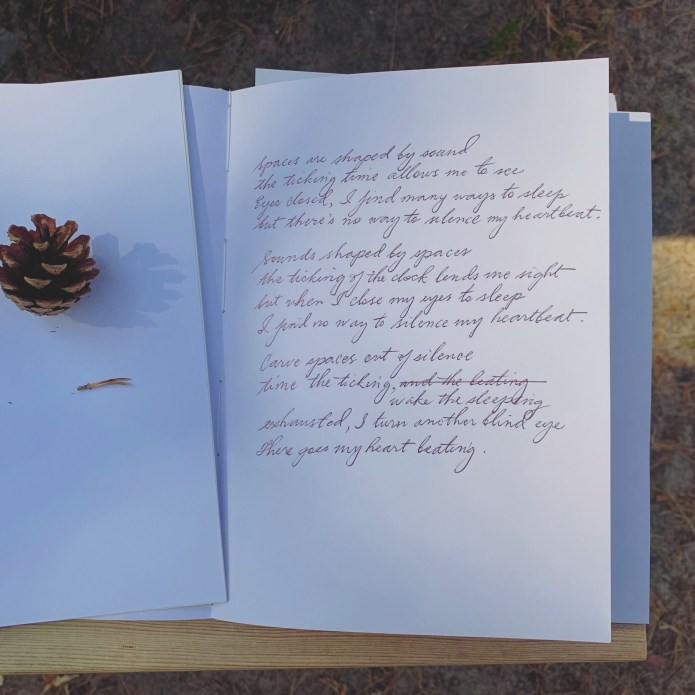 Spaces are shaped by sound
the ticking time allows me to see
Eyes closed, I find many ways to sleep
but there's no way to silence my heartbeat.
Sounds shaped by spaces
the ticking of the clock lends me sight
but when I close my eyes to sleep
I find no way to silence my heartbeat.
Carve spaces out of silence
time the ticking, and the beating
wake the sleeping
exhausted, I turn another blind eye
There goes my heart beating.